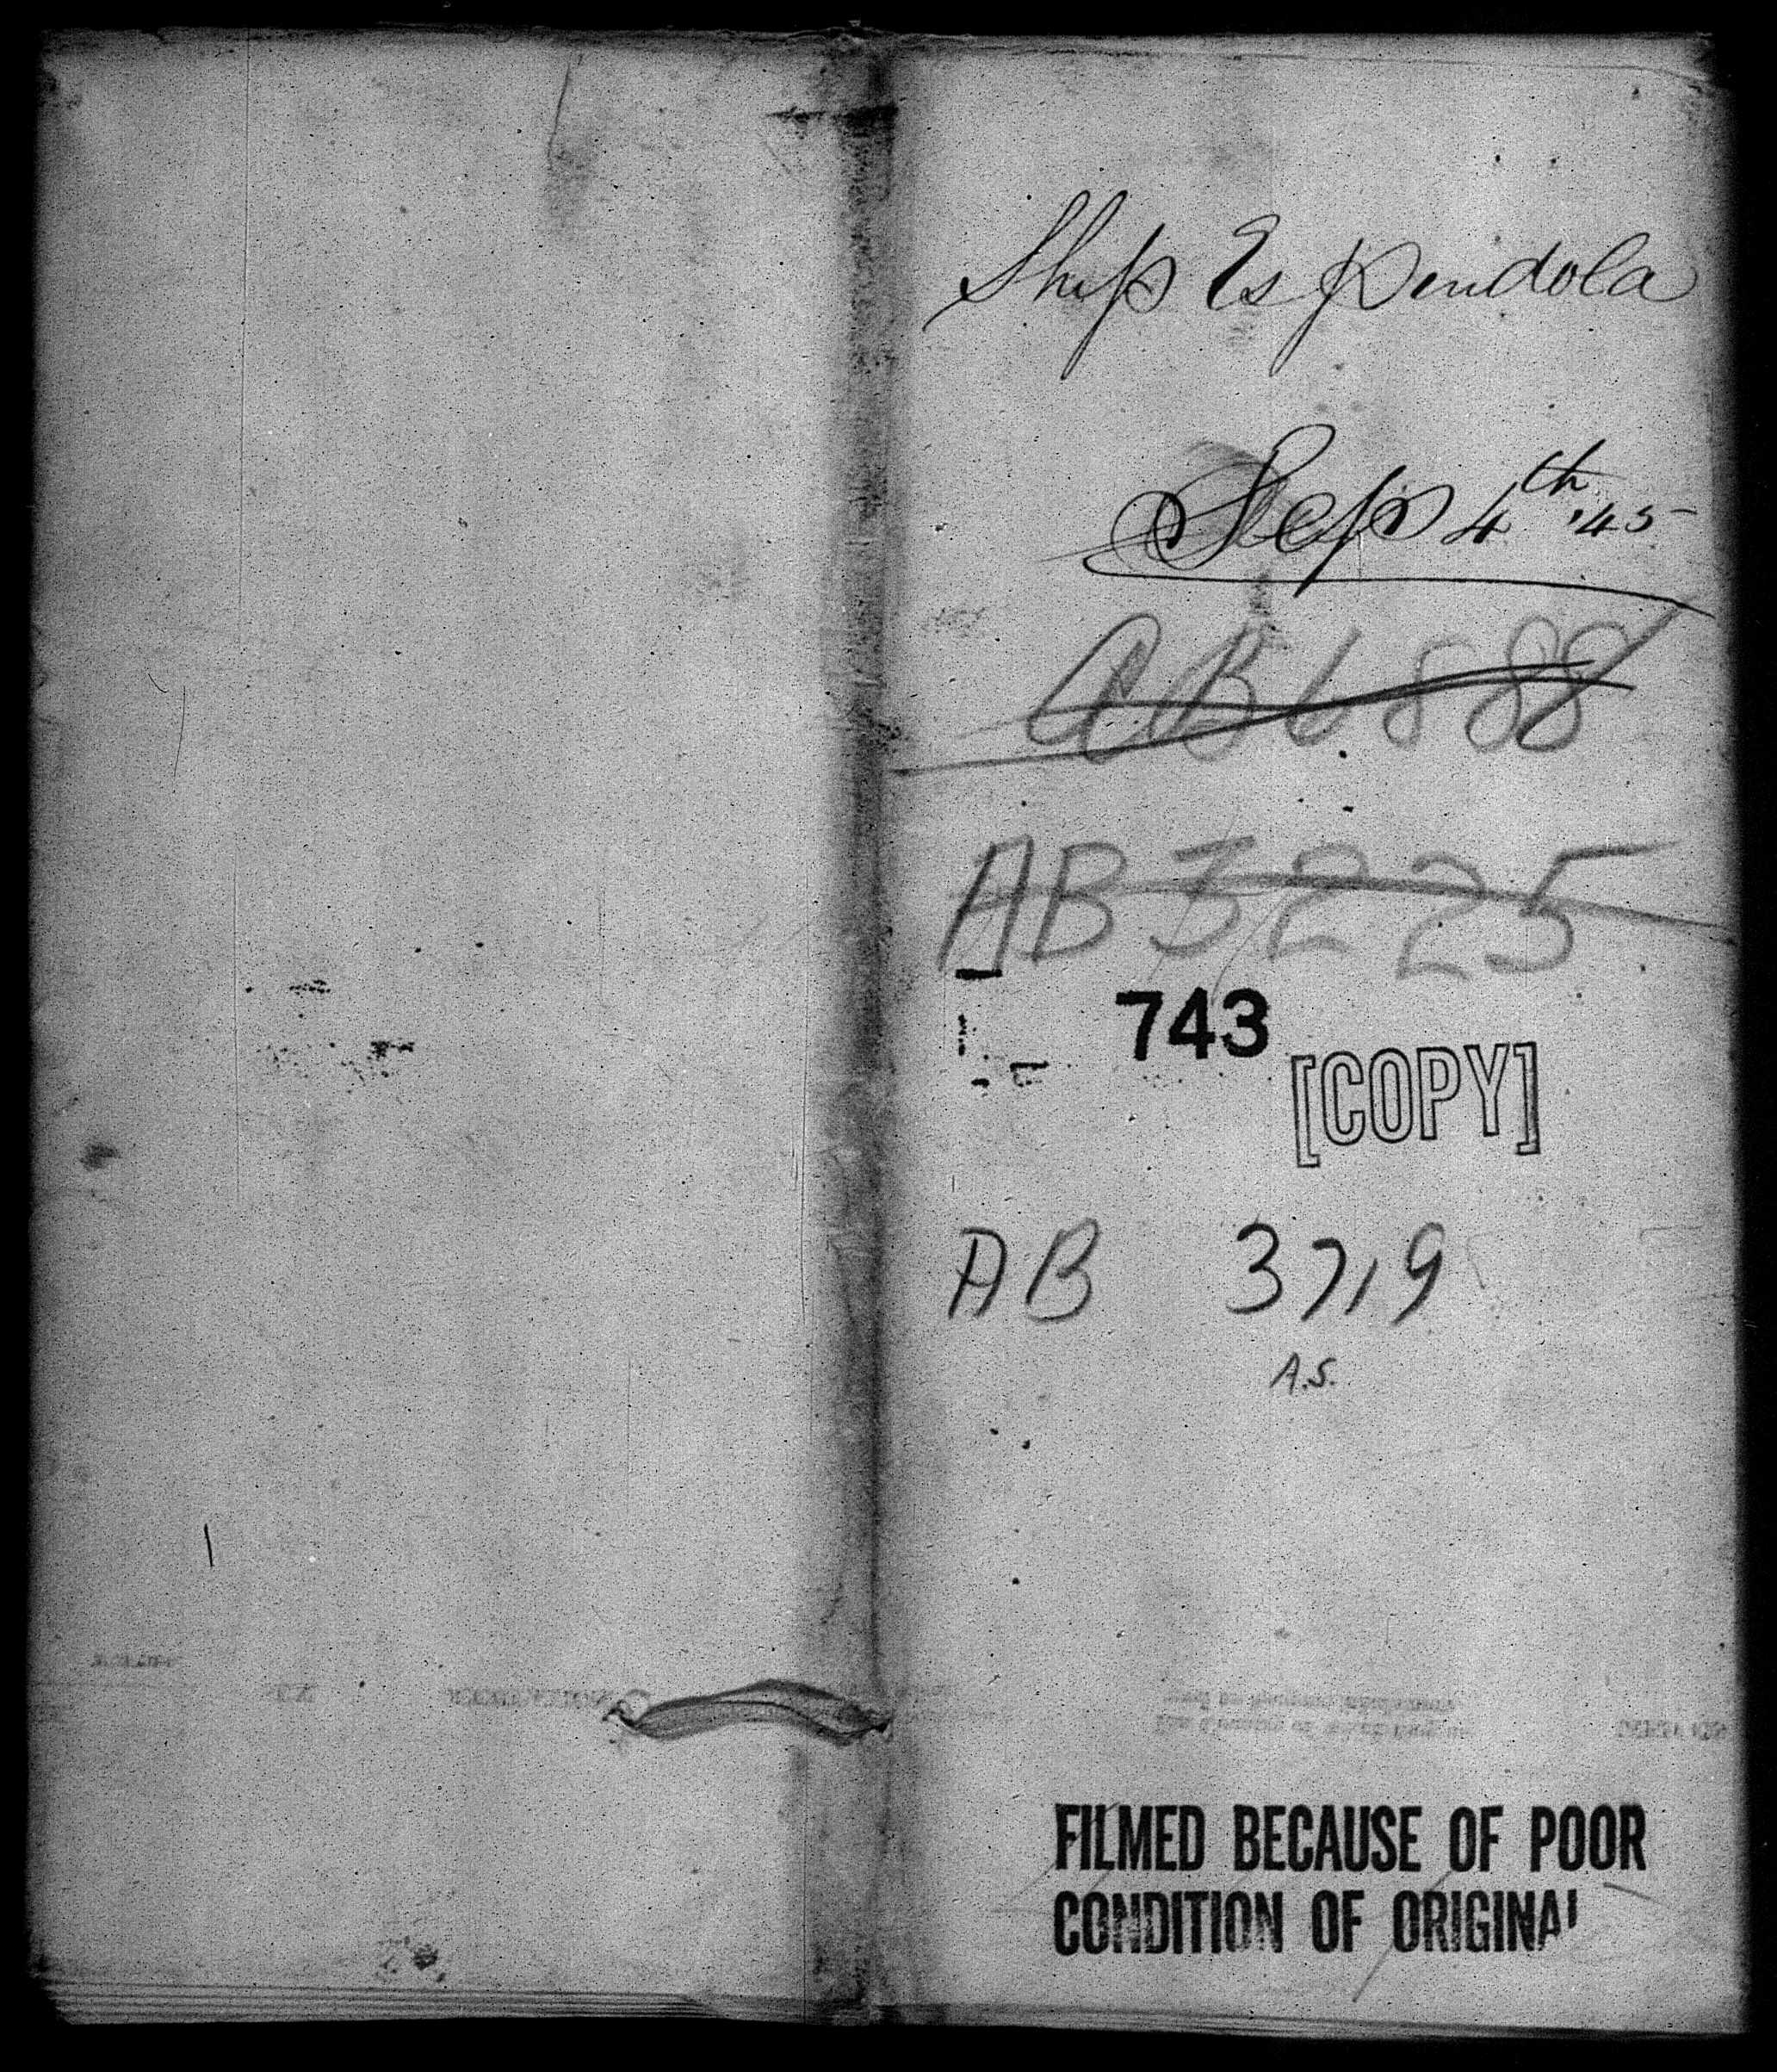 Ship Espendola
Sep 4th '45
AB6888
AB3225
743
[COPY]
AB 3719
A.S.
FILMED BECAUSE OF POOR
CONDITION OF ORIGINAL